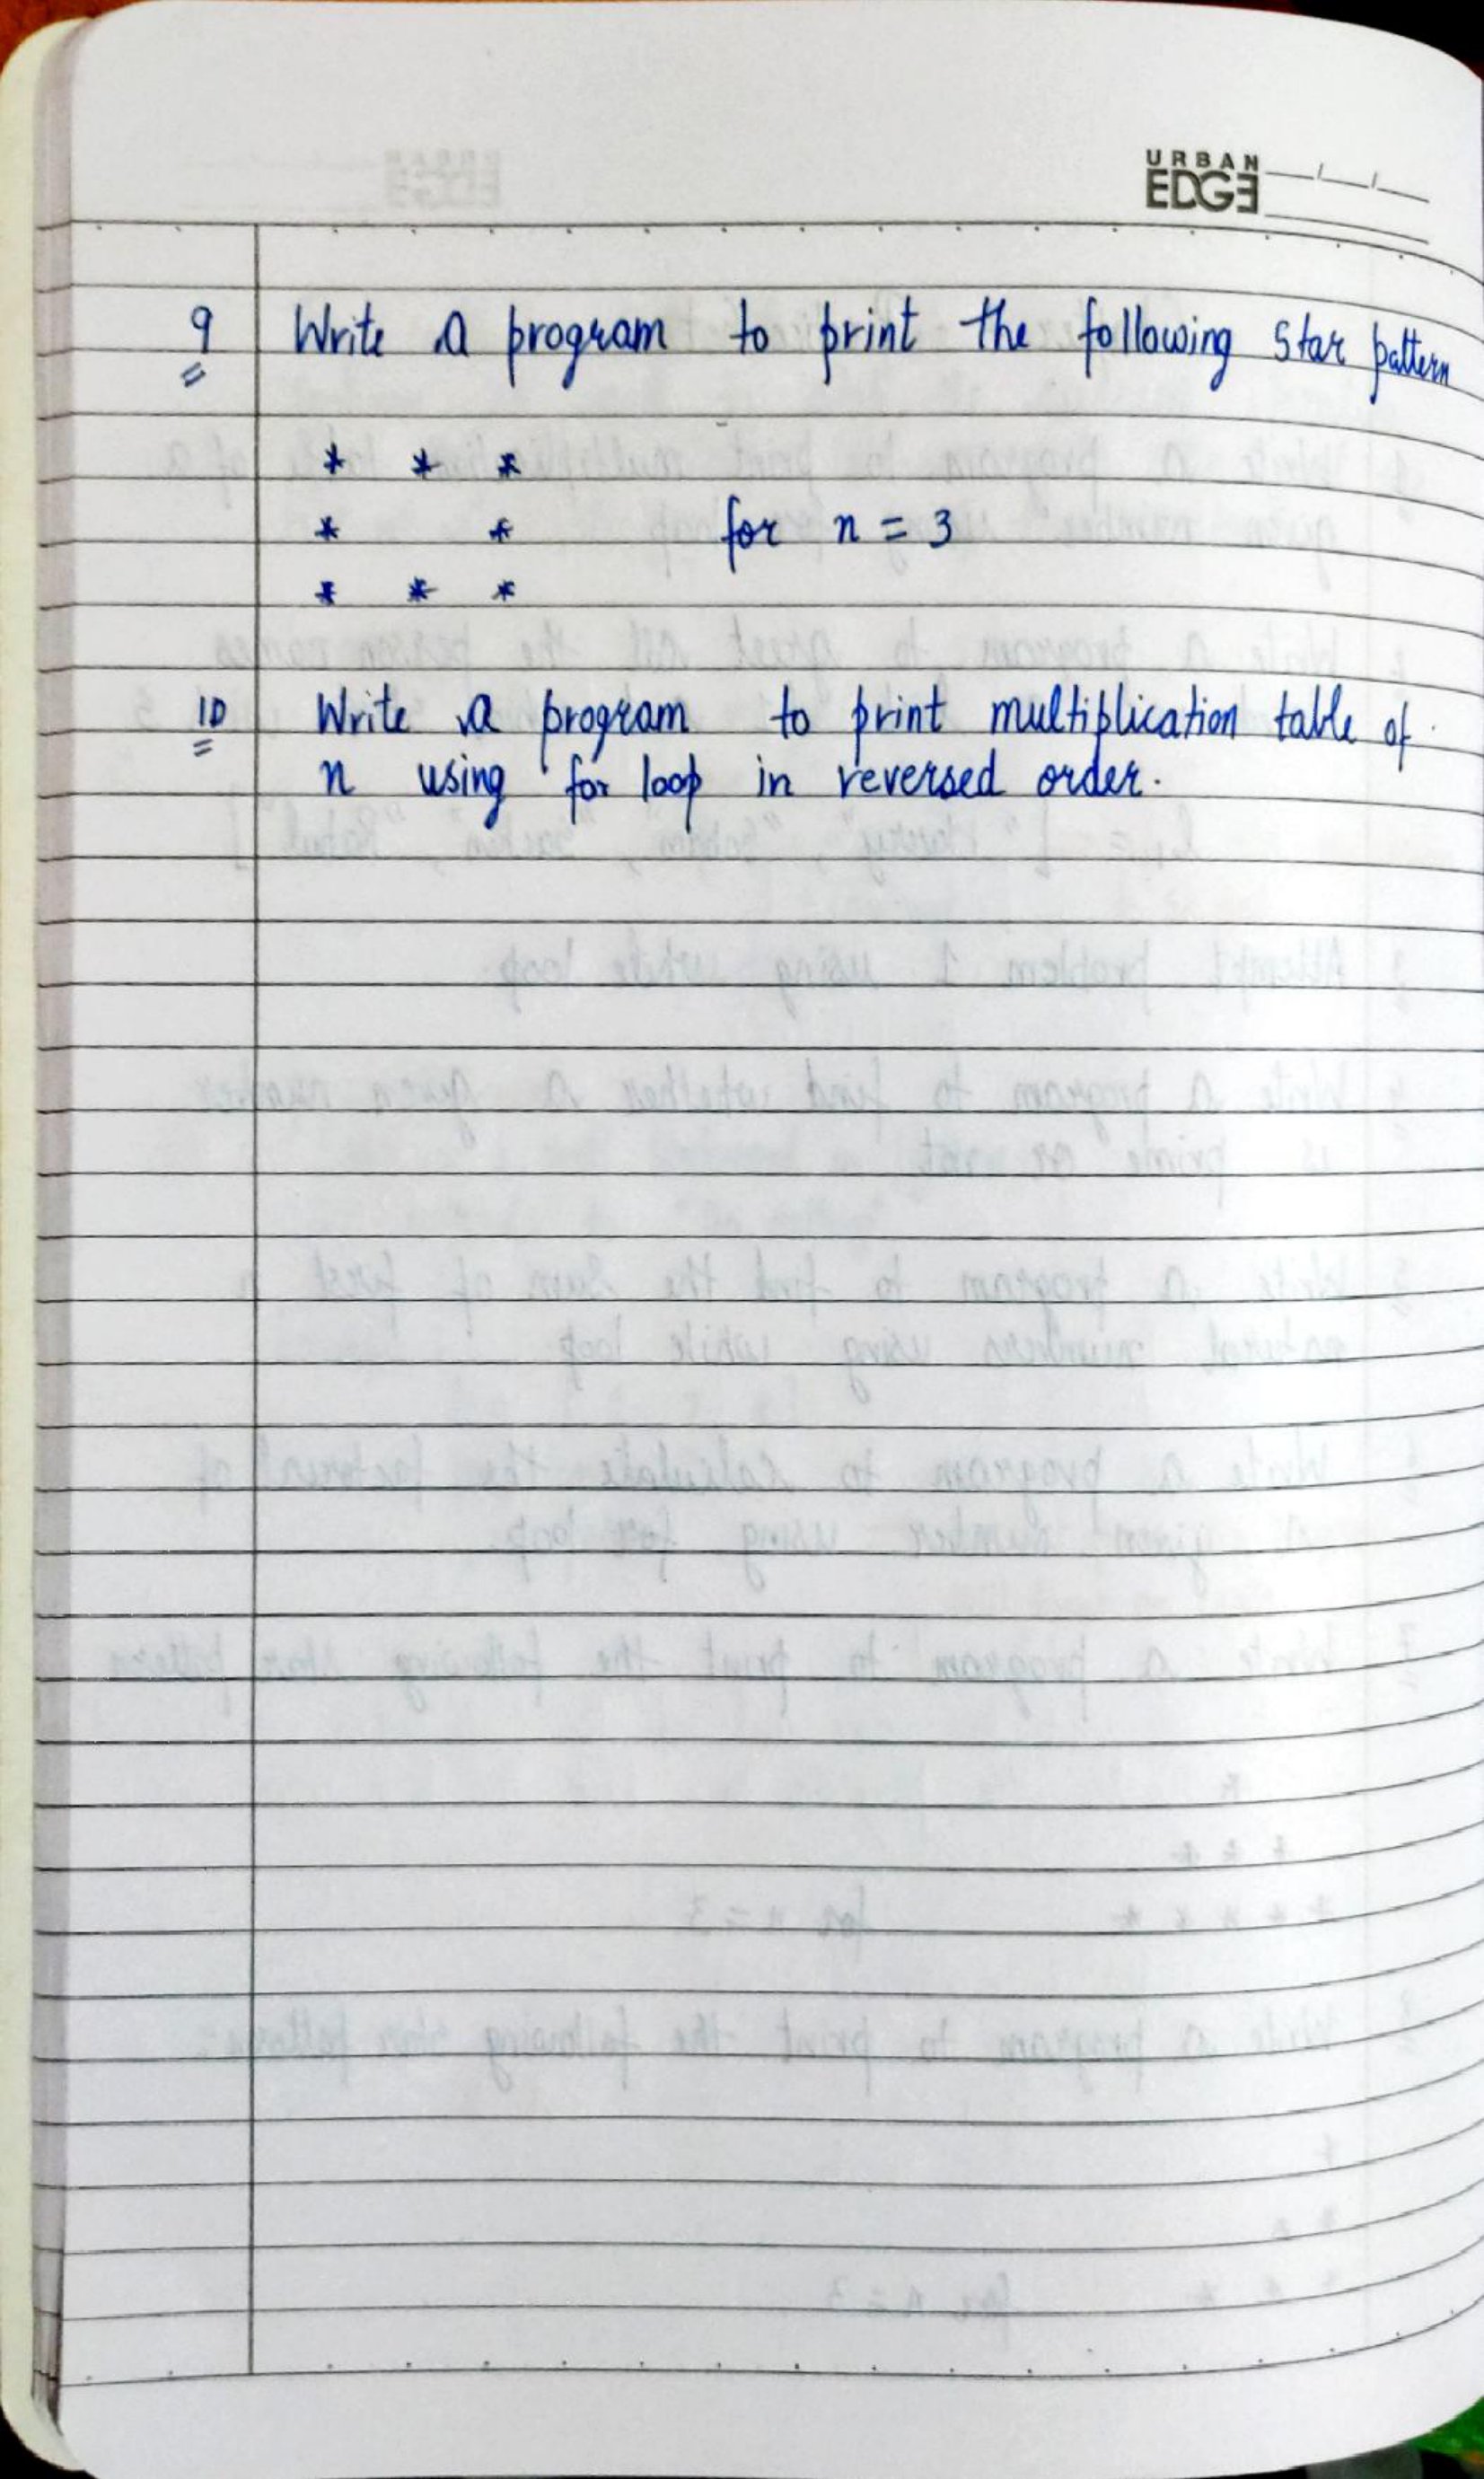 URBAN
EDGE
9 Write a program to print the following star pattern
* * *
*   * for n = 3
* * *
10 Write a program to print multiplication table of
n using for loop in reversed order.